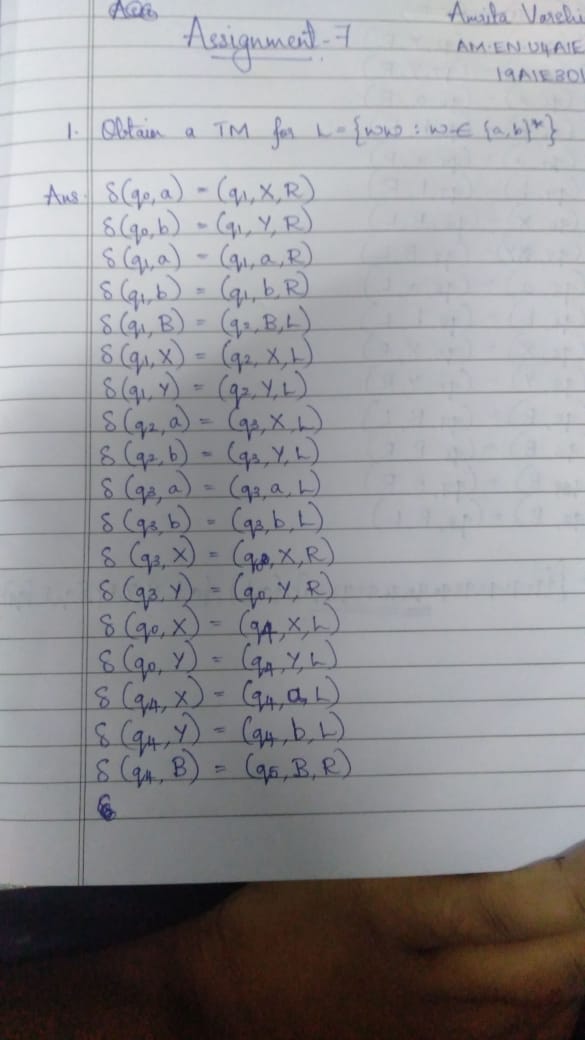 Assignment-7
Amrita
AM.EN.U4AIE
19AIE301
1. Obtain a TM for L = {ww : w ∈ {a,b}*}
Ans. δ(q0, a) = (q1, X, R)
δ(q0, b) = (q1, Y, R)
δ(q1, a) = (q1, a, R)
δ(q1, b) = (q1, b, R)
δ(q1, B) = (q2, B, L)
δ(q1, X) = (q2, X, L)
δ(q1, Y) = (q2, Y, L)
δ(q2, a) = (q3, X, L)
δ(q2, b) = (q3, Y, L)
δ(q3, a) = (q3, a, L)
δ(q3, b) = (q3, b, L)
δ(q3, X) = (q0, X, R)
δ(q3, Y) = (q0, Y, R)
δ(q0, X) = (q4, X, L)
δ(q0, Y) = (q4, Y, L)
δ(q4, X) = (q4, a, L)
δ(q4, Y) = (q4, b, L)
δ(q4, B) = (q5, B, R)